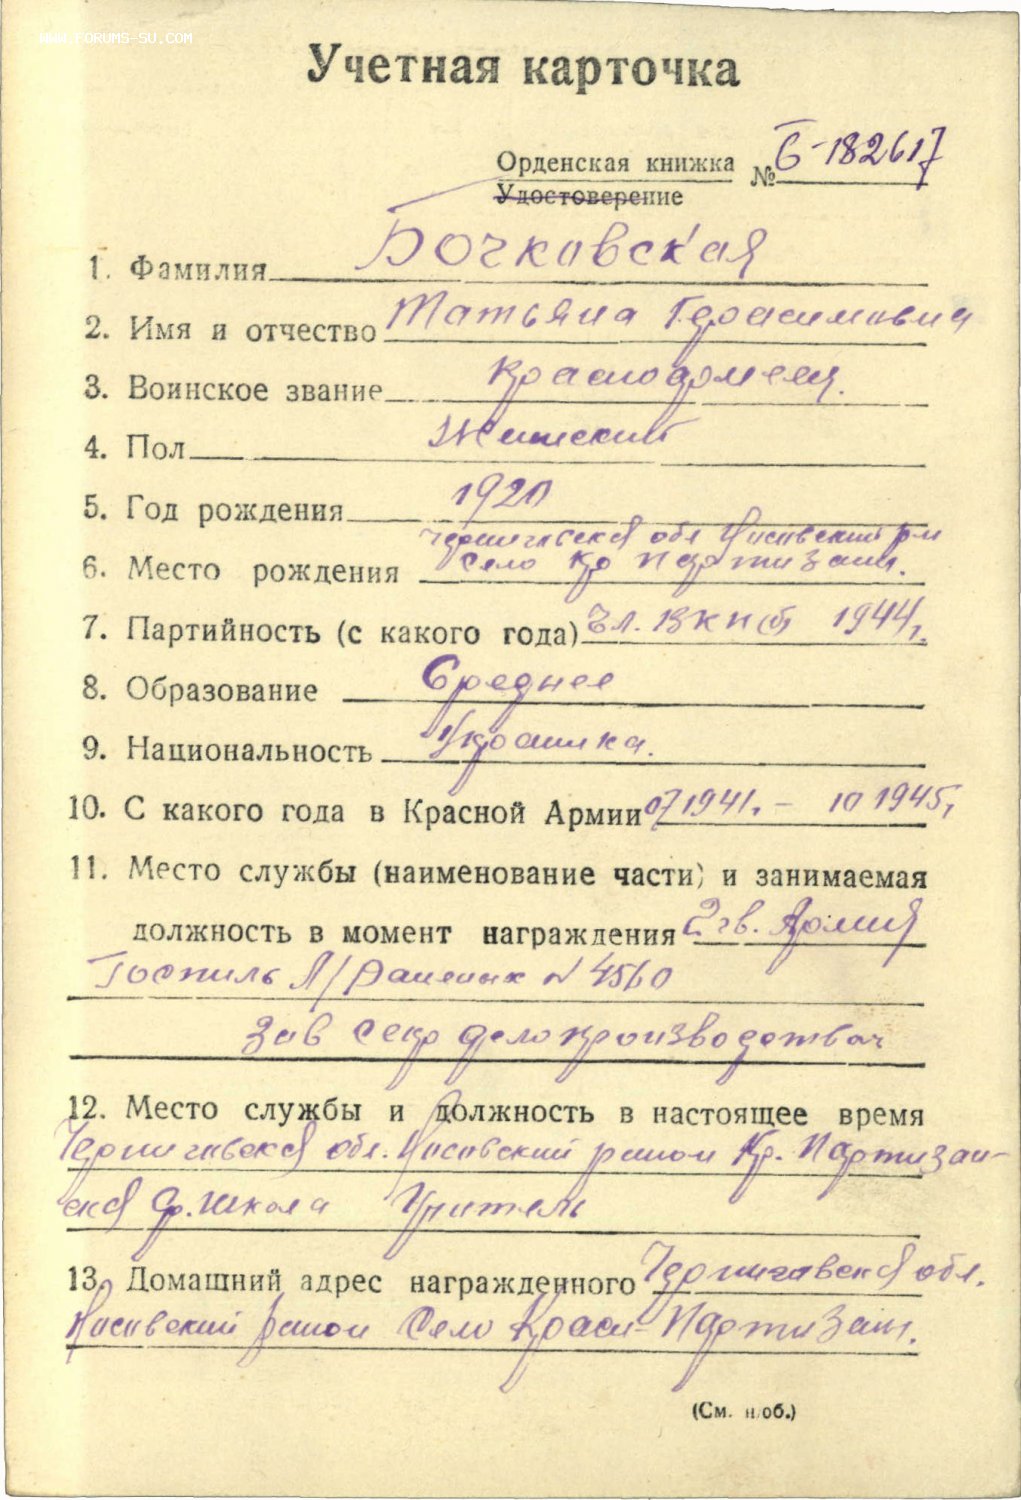 WWW.FORUMS-SU.COM
Учетная карточка
Орденская книжка № Б-182617
Удостоверение
1. Фамилия Бочковская
2. Имя и отчество Татьяна Герасимовна
3. Воинское звание Красноармеец.
4. Пол Женский
5. Год рождения 1920
Черниговская обл Носовский р-н
6. Место рождения Село Кр Партизаны.
7. Партийность (с какого года) Чл. ВКП(б) 1944 г.
8. Образование Среднее
9. Национальность Украинка.
10. С какого года в Красной Армии 07 1941 г. – 10 1945 г.
11. Место службы (наименование части) и занимаемая
должность в момент награждения 2 гв. Армия
Госпиль Л/Раненых N 4560
Зав секр делопроизводством
12. Место службы и должность в настоящее время
Черниговская обл. Носовский район Кр. Партизан-
ская ср. школа Учитель
13. Домашний адрес награжденного Черниговская обл.
Носовский район Село Красн-Партизаны.
(См. н/об.)